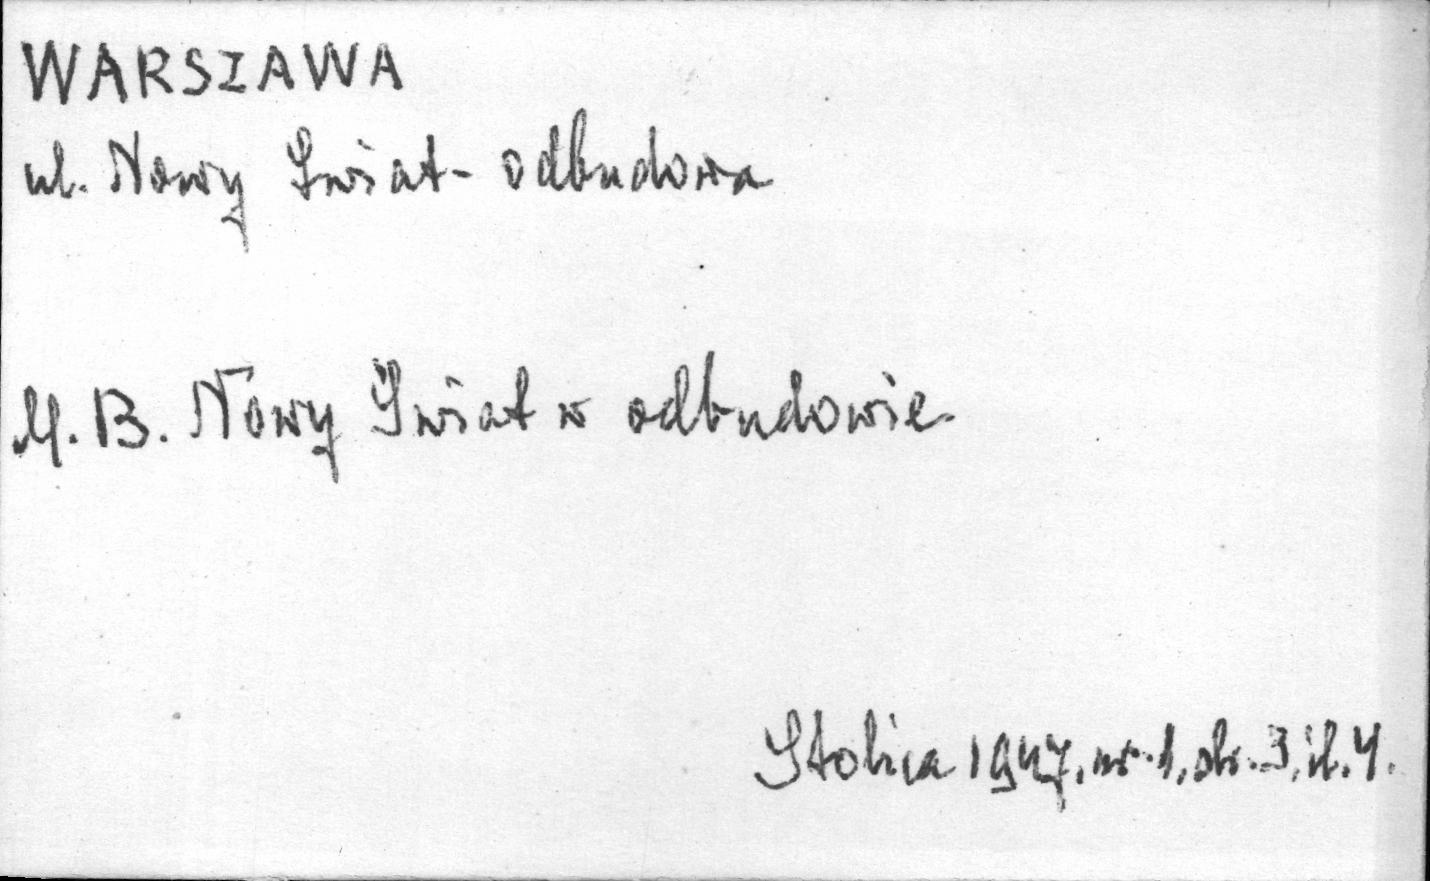 WARSZAWA
ul. Nowy Świat - odbudowa
M.B. Nowy Świat w odbudowie
Stolica 1947, nr. 1, str. 3, il. 4.